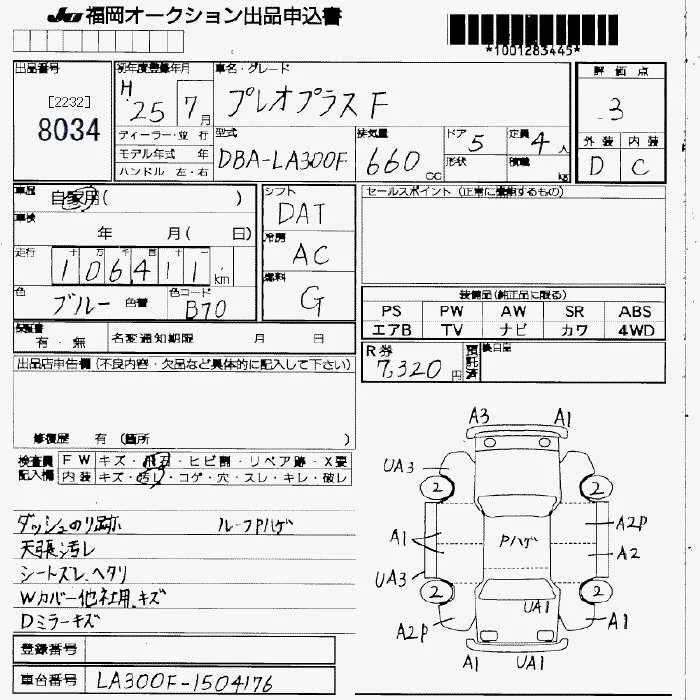 JU 福岡オークション出品申込書
*1001283445*
出品番号
[2232]
8034
初年度登録年月
H 25 7月
ディーラー・並 行
モデル年式 年
ハンドル 左・右
車名・グレード
プレオプラス F
型式
DBA-LA300F
排気量
660 cc
ドア 5
定員 4人
形状
積載 kg
評価点
3
外装 内装
D C
車歴 自家用( )
車検
年 月( 日)
走行
十 万 千 百 十 一
106411 km
色 ブルー 色替
色コード B70
シフト
DAT
冷房
AC
燃料
G
セールスポイント (正常に機能するもの)
装備品(純正品に限る)
PS PW AW SR ABS
エアB TV ナビ カワ 4WD
保証書
有・無
名変通知期限 月 日
R券
7,320円
預託済
出品店申告欄 (不良内容・欠品など具体的に記入して下さい)
修復歴 有 (箇所 )
検査員記入欄
FW キズ・飛石・ヒビ割・リペア跡・X要
内装 キズ・汚レ・コゲ・穴・スレ・キレ・破レ
ダッシュのり跡 ルーフPハゲ
天張汚レ
シートズレ、ヘタリ
Wカバー他社用、キズ
Dミラーキズ
登録番号
車台番号 LA300F-1504176
A3 A1
UA3
2 2
A1 Pハゲ A2P
A2
UA3
2 2
UA1
A2P A1
A1 UA1